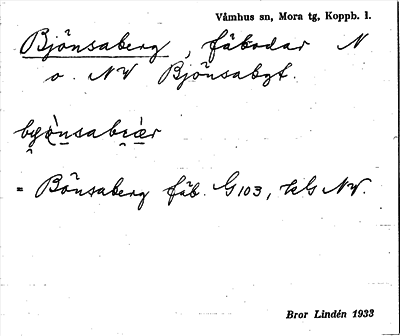 Våmhus sn, Mora tg, Koppb. l.
Bjönsaberg, fäbodar N
o. NV Bjönsabgt.
= Bönsaberg fäb. G103, kG NV.
Bror Lindén 1933